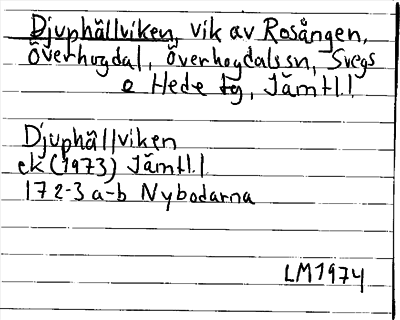 Djuphällviken, vik av Rosången,
Överhogdal, Överhogdalssn, Svegs
o Hede tg, Jämtl.l
Djuphällviken
ek (1973) Jämtl.l
172-3 a-b Nybodarna
LM1974